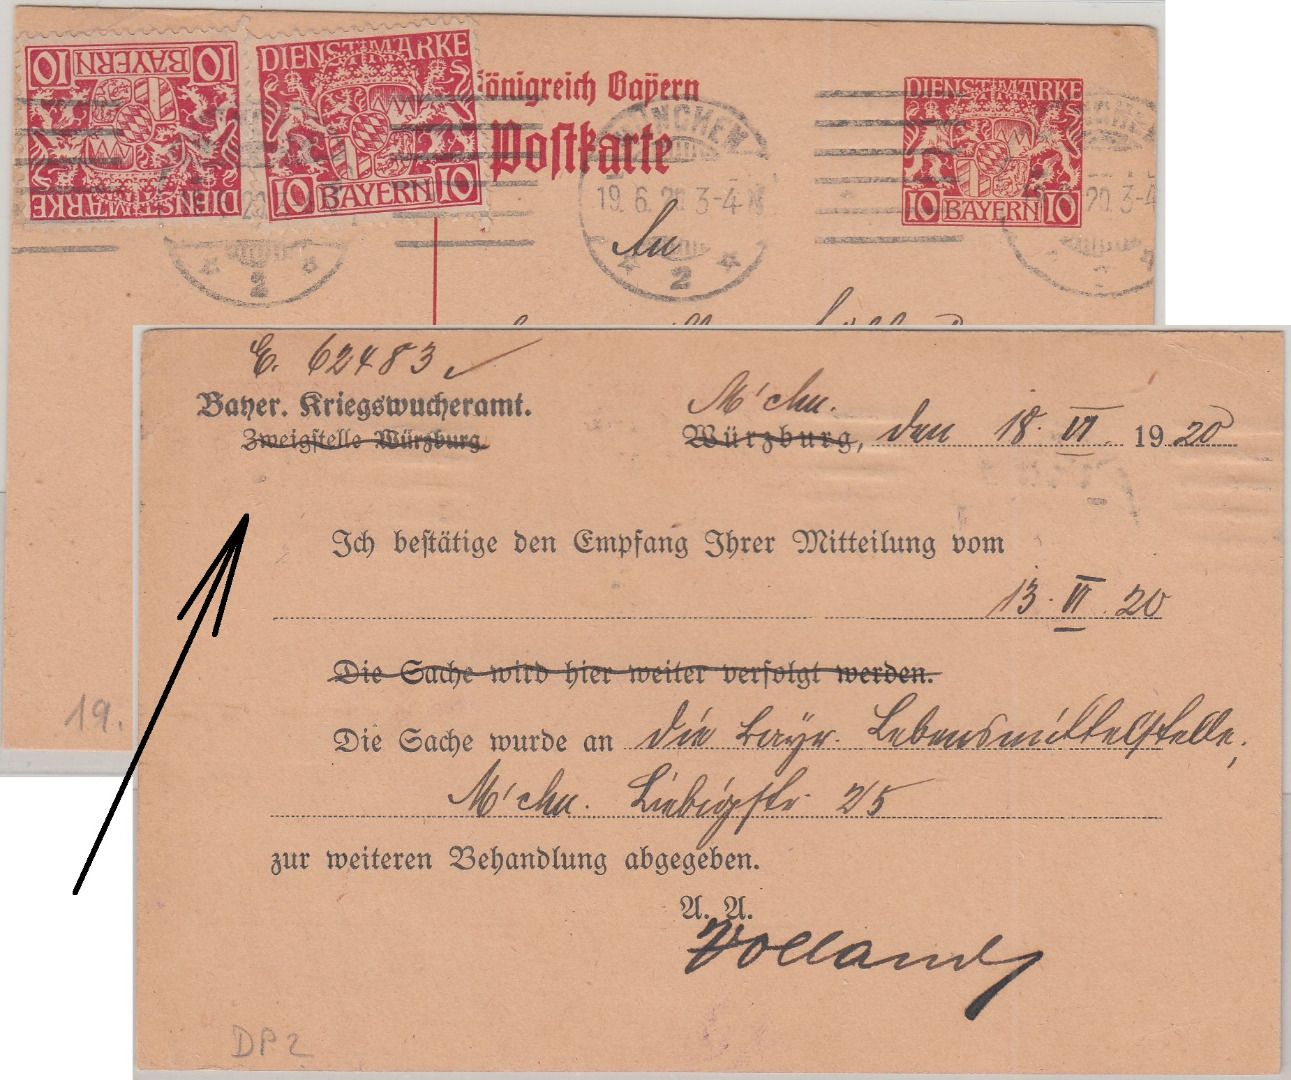 10 BAYERN 10
DIENSTMARKE
DIENSTMARKE
10 BAYERN 10
Königreich Bayern
Postkarte
MÜNCHEN
19.6.20.3-4N
2
DIENSTMARKE
10 BAYERN 10
An
E. 62483
Bayer. Kriegswucheramt.
Zweigstelle Würzburg
M'chn.
Würzburg, den 18. VI. 1920
Ich bestätige den Empfang Ihrer Mitteilung vom
13. VI. 20
Die Sache wird hier weiter verfolgt werden.
Die Sache wurde an die bayr. Lebensmittelstelle,
M'chn. Liebigstr. 25
zur weiteren Behandlung abgegeben.
A. A.
Volland
19.
DP 2